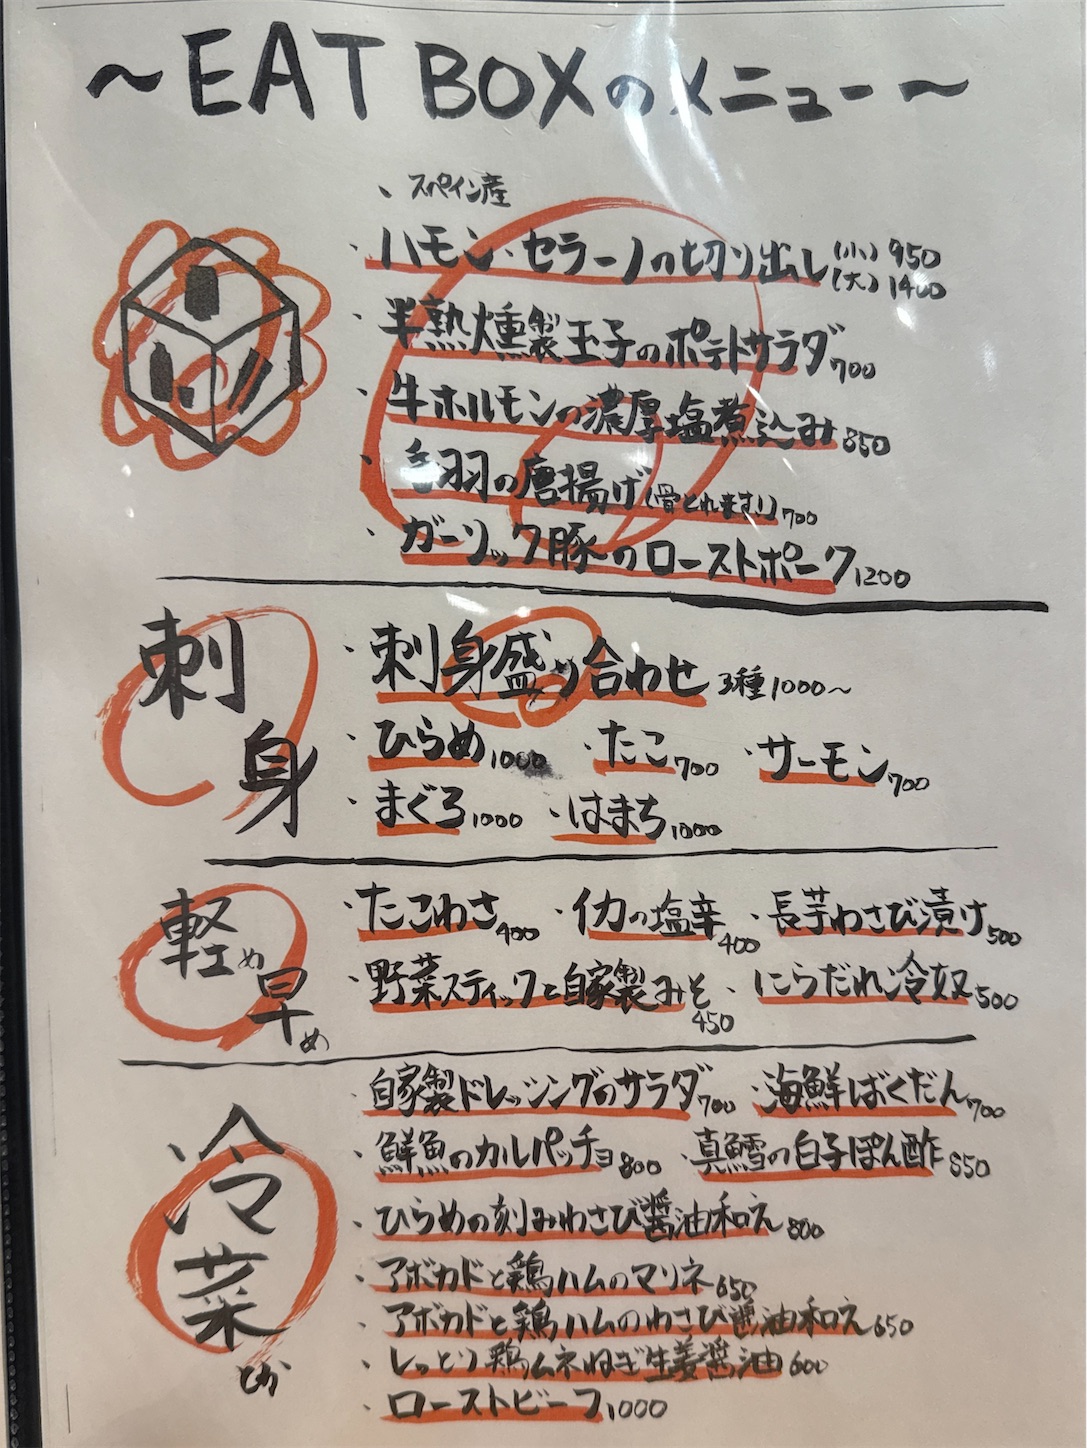 ～EAT BOXのメニュー～
・スペイン産
・ハモン・セラーノの切り出し (小) 950 (大) 1400
・半熟燻製玉子のポテトサラダ 700
・牛ホルモンの濃厚塩煮込み 850
・手羽の唐揚げ(骨とれます!) 700
・ガーリック豚のローストポーク 1200
刺身
・刺身盛り合わせ 3種1000〜
・ひらめ 1000 ・たこ 700 ・サーモン 700
・まぐろ 1000 ・はまち 1000
軽め早め
・たこわさ 400 ・イカの塩辛 400 ・長芋わさび漬け 500
・野菜スティックと自家製みそ 450 ・にらだれ冷奴 500
冷菜とか
・自家製ドレッシングのサラダ 700 ・海鮮ばくだん 700
・鮮魚のカルパッチョ 800 ・真鱈の白子ぽん酢 850
・ひらめの刻みわさび醤油和え 800
・アボカドと鶏ハムのマリネ 650
・アボカドと鶏ハムのわさび醤油和え 650
・しっとり鶏ムネねぎ生姜醤油 600
・ローストビーフ 1000